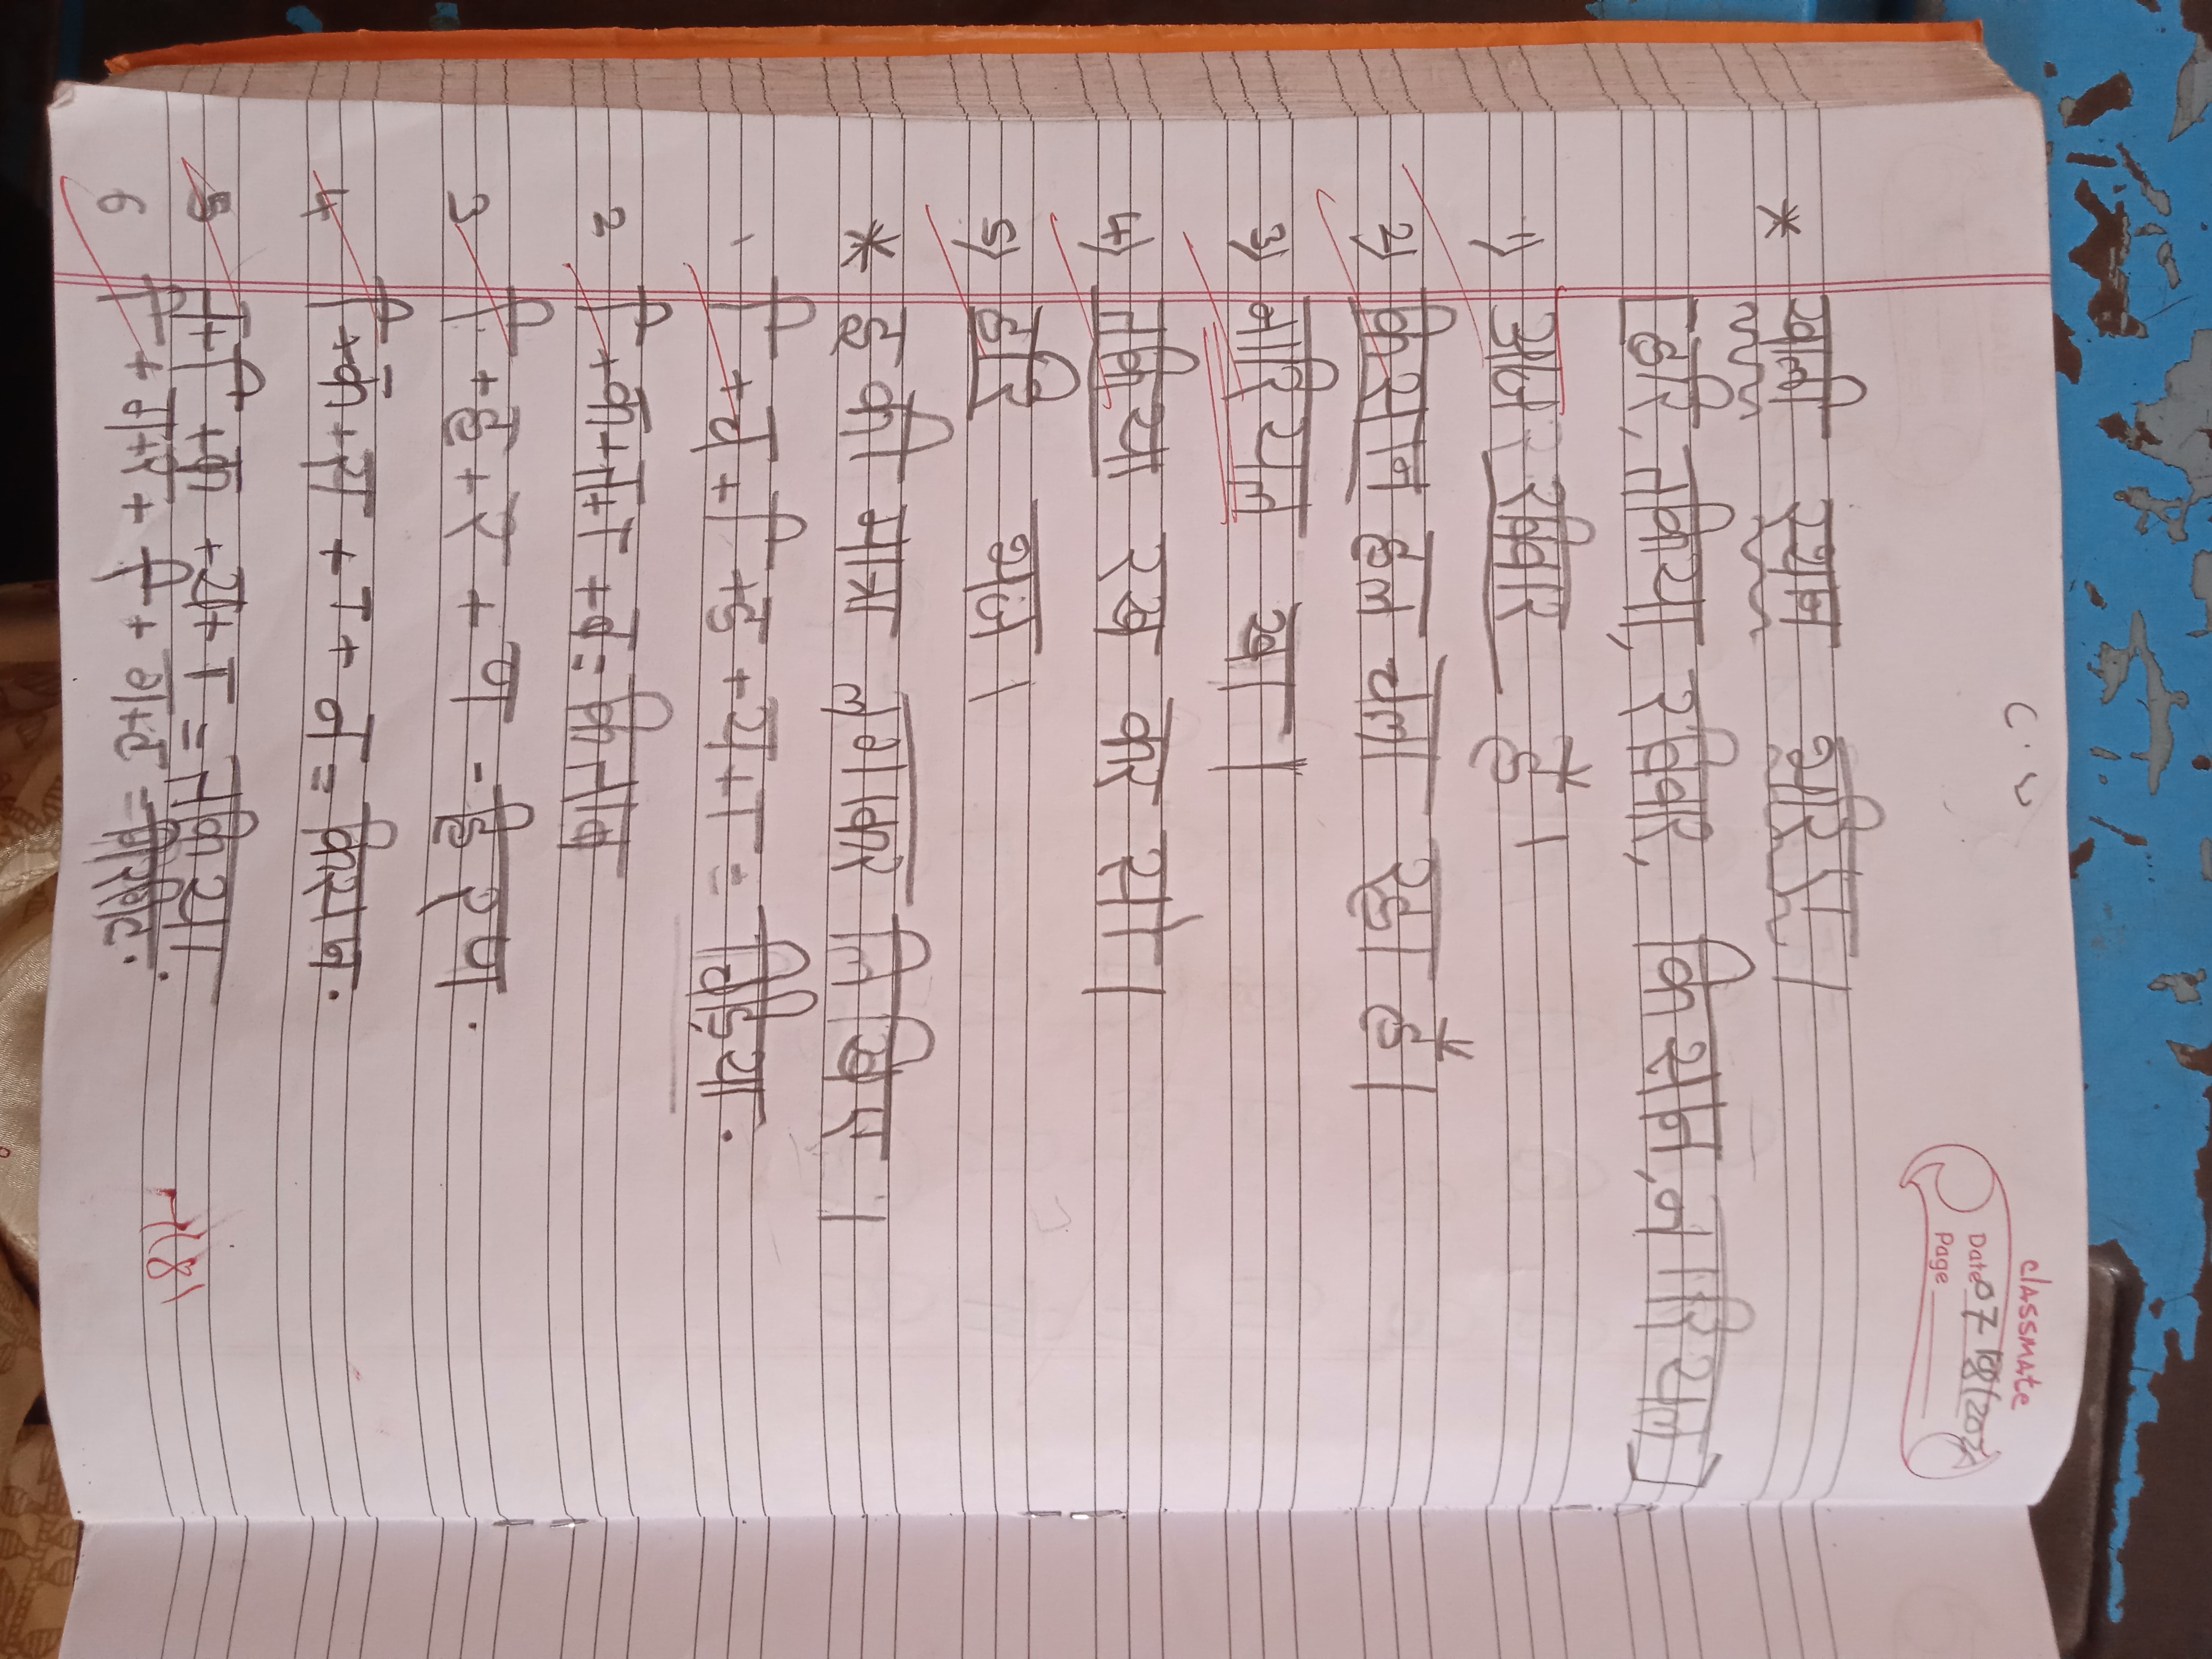 classmate
Date 07/08/202
Page
C.W
* खालि स्थान भरिए।
[हरि, तकिया, रविवार, किसान, नारियल]
1) आज रविवार है।
2) किसान हल चला रहा है।
3) नारियल खा।
4) तकिया रख कर सो।
5) हरि भज।
* इ की मात्रा लगाकर लिखिए।
1 ि + च + ि + ड + य + ा = चिड़िया.
2 ि + क + त + ा + ब = किताब
3 ि + ह + र + ण - हिरण.
4 ि + क + स + ा + न = किसान.
5 त + ि + क + य + ा = तकिया.
6 ि + ग + र + ि + ग + ट = गिरगिट.